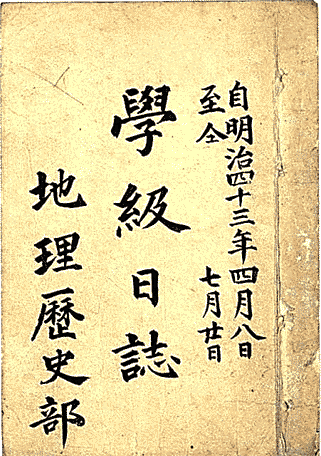 自明治四十三年四月八日
至仝　七月廿日
學級日誌
地理歷史部